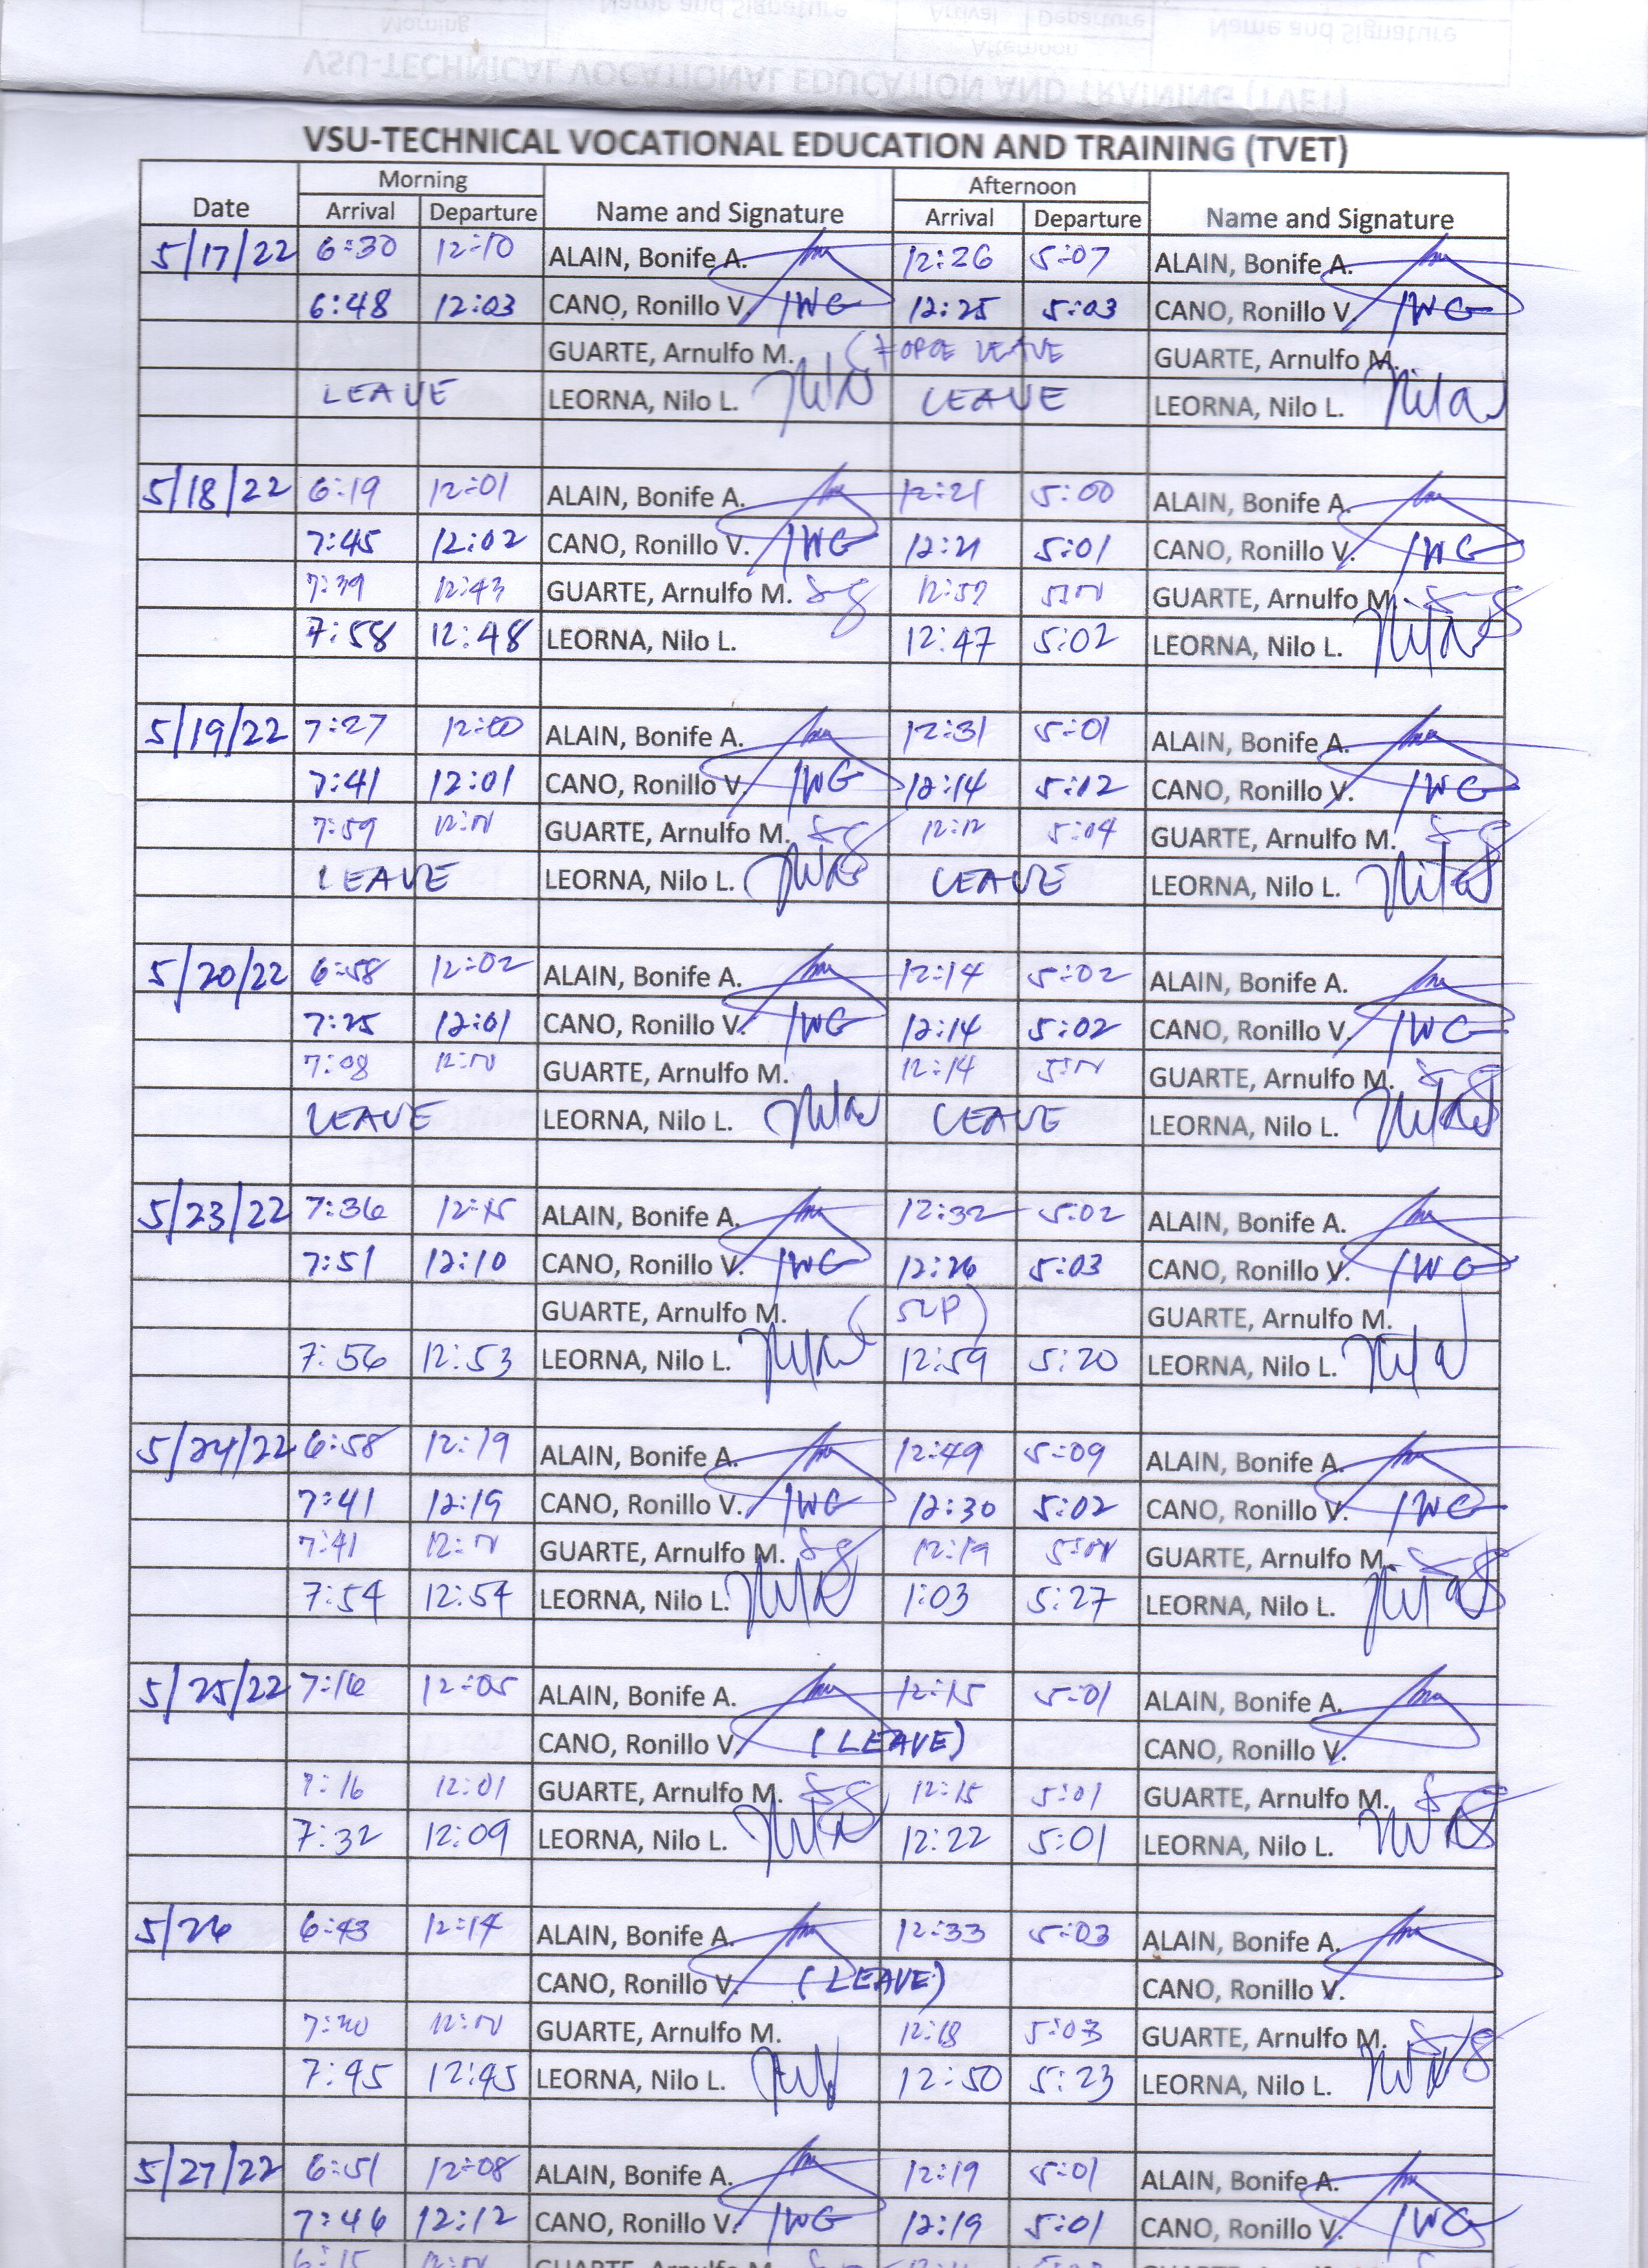 VSU-TECHNICAL VOCATIONAL EDUCATION AND TRAINING (TVET)
Morning Afternoon
Date Arrival Departure Name and Signature Arrival Departure Name and Signature
5/17/22 6:30 12:10 ALAIN, Bonife A. 12:26 5:07 ALAIN, Bonife A.
6:48 12:03 CANO, Ronillo V. 12:25 5:03 CANO, Ronillo V.
GUARTE, Arnulfo M. LEAVE GUARTE, Arnulfo M.
LEAVE LEORNA, Nilo L. LEAVE LEORNA, Nilo L.
5/18/22 6:19 12:01 ALAIN, Bonife A. 12:21 5:00 ALAIN, Bonife A.
7:45 12:02 CANO, Ronillo V. 12:21 5:01 CANO, Ronillo V.
7:39 12:43 GUARTE, Arnulfo M. 12:57 GUARTE, Arnulfo M.
7:58 12:48 LEORNA, Nilo L. 12:47 5:02 LEORNA, Nilo L.
5/19/22 7:27 12:00 ALAIN, Bonife A. 12:31 5:01 ALAIN, Bonife A.
7:41 12:01 CANO, Ronillo V. 12:14 5:02 CANO, Ronillo V.
7:59 GUARTE, Arnulfo M. 12:12 5:04 GUARTE, Arnulfo M.
LEAVE LEORNA, Nilo L. LEAVE LEORNA, Nilo L.
5/20/22 6:58 12:02 ALAIN, Bonife A. 12:14 5:02 ALAIN, Bonife A.
7:25 12:01 CANO, Ronillo V. 12:14 5:02 CANO, Ronillo V.
7:08 GUARTE, Arnulfo M. 12:14 GUARTE, Arnulfo M.
LEAVE LEORNA, Nilo L. LEAVE LEORNA, Nilo L.
5/23/22 7:36 12:15 ALAIN, Bonife A. 12:32 5:02 ALAIN, Bonife A.
7:51 12:10 CANO, Ronillo V. 12:26 5:03 CANO, Ronillo V.
GUARTE, Arnulfo M. (SLP) GUARTE, Arnulfo M.
7:56 12:53 LEORNA, Nilo L. 12:59 5:20 LEORNA, Nilo L.
5/24/22 6:58 12:19 ALAIN, Bonife A. 12:49 5:09 ALAIN, Bonife A.
7:41 12:19 CANO, Ronillo V. 12:30 5:02 CANO, Ronillo V.
7:41 GUARTE, Arnulfo M. 12:19 GUARTE, Arnulfo M.
7:54 12:54 LEORNA, Nilo L. 1:03 5:27 LEORNA, Nilo L.
5/25/22 7:16 12:05 ALAIN, Bonife A. 12:15 5:01 ALAIN, Bonife A.
CANO, Ronillo V. (LEAVE) CANO, Ronillo V.
7:16 12:01 GUARTE, Arnulfo M. 12:15 5:01 GUARTE, Arnulfo M.
7:32 12:09 LEORNA, Nilo L. 12:22 5:01 LEORNA, Nilo L.
5/26 6:43 12:14 ALAIN, Bonife A. 12:33 5:03 ALAIN, Bonife A.
CANO, Ronillo V. (LEAVE) CANO, Ronillo V.
GUARTE, Arnulfo M. 12:18 5:03 GUARTE, Arnulfo M.
7:45 12:45 LEORNA, Nilo L. 12:50 5:23 LEORNA, Nilo L.
5/27/22 6:51 12:08 ALAIN, Bonife A. 12:19 5:01 ALAIN, Bonife A.
7:46 12:12 CANO, Ronillo V. 12:19 5:01 CANO, Ronillo V.
GUARTE, Arnulfo M. GUARTE, Arnulfo M.